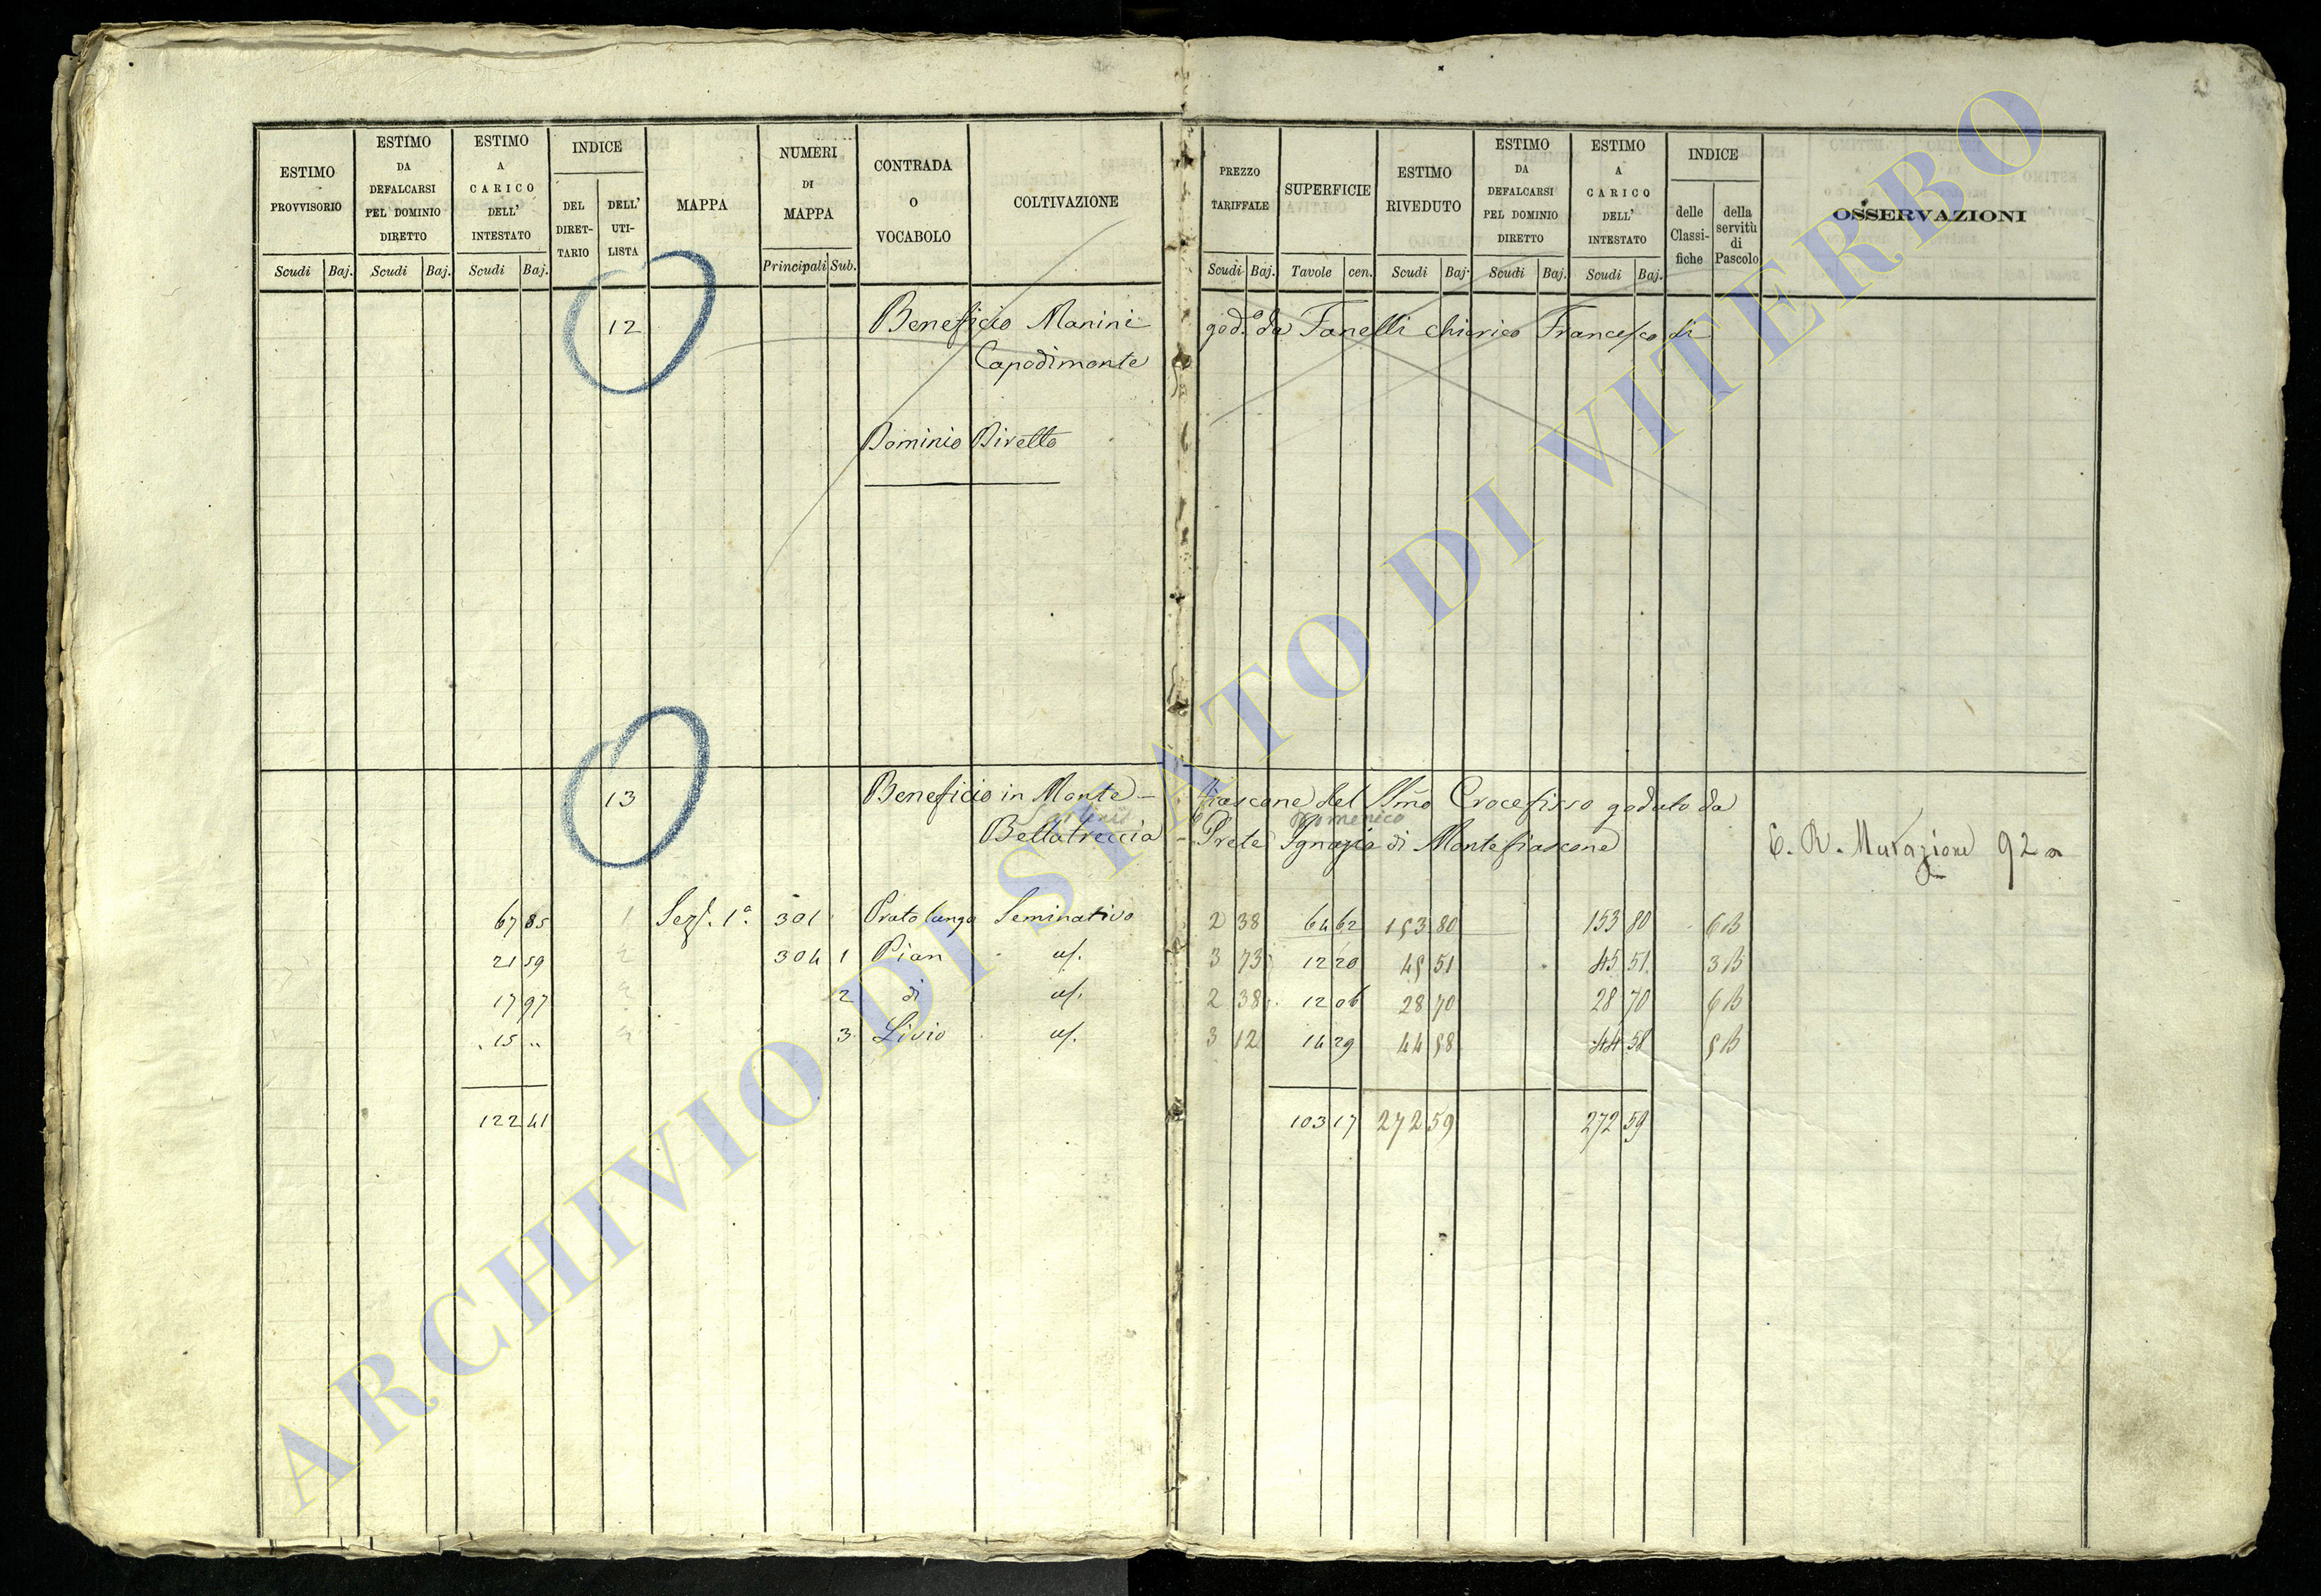 ESTIMO PROVVISORIO Scudi Baj.
ESTIMO DA DEFALCARSI PEL DOMINIO DIRETTO Scudi Baj.
ESTIMO A CARICO DELL' INTESTATO Scudi Baj.
INDICE DEL DIRET-TARIO DELL' UTI-LISTA
MAPPA
NUMERI DI MAPPA Principali Sub.
CONTRADA O VOCABOLO
COLTIVAZIONE
PREZZO TARIFFALE Scudi Baj.
SUPERFICIE Tavole cen.
ESTIMO RIVEDUTO Scudi Baj.
ESTIMO DA DEFALCARSI PEL DOMINIO DIRETTO Scudi Baj.
ESTIMO A CARICO DELL' INTESTATO Scudi Baj.
INDICE delle Classi-fiche della servitù di Pascolo
OSSERVAZIONI
12 Beneficio Manini god.o da Fanelli chierico Francesco di
Capodimonte
Dominio Diretto
13 Beneficio in Monte- fiascone del SSmo Crocefisso goduto da
Domenico
Bellatreccia Prete Ignazio di Montefiascone
E. R. Mutazione 92
67 85 1 Sez. 1a 301 Prato lungo Seminativo 2 38 64 62 153 80 153 80 6B
21 59 2 304 1 Pian us. 3 73 12 20 45 51 45 51 3B
17 97 2 di us. 2 38 12 06 28 70 28 70 6B
15 " 3 Livio us. 3 12 14 29 44 58 44 58 5B
122 41 103 17 272 59 272 59
ARCHIVIO DI STATO DI VITERBO